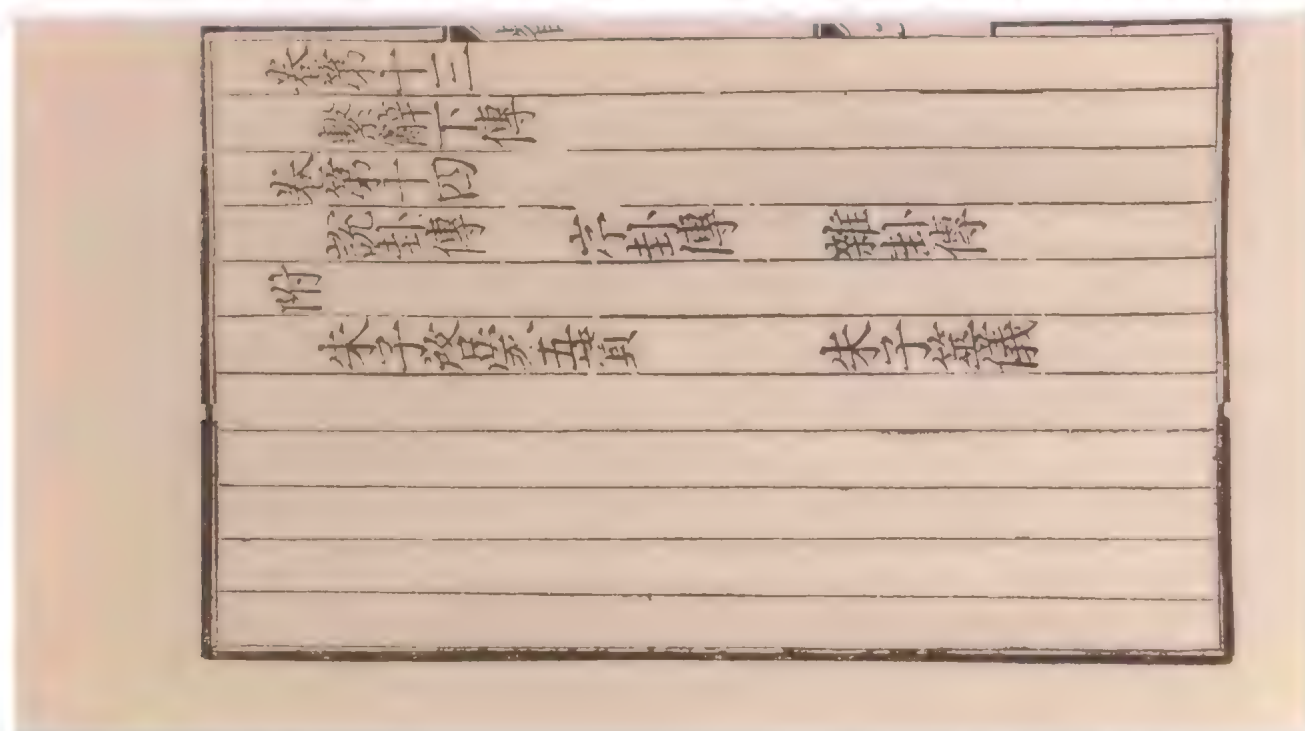 卷第十三
繫辭下傳
卷第十四
說卦傳 序卦傳 雜卦傳
附
朱子啓蒙五贊 朱子筮儀